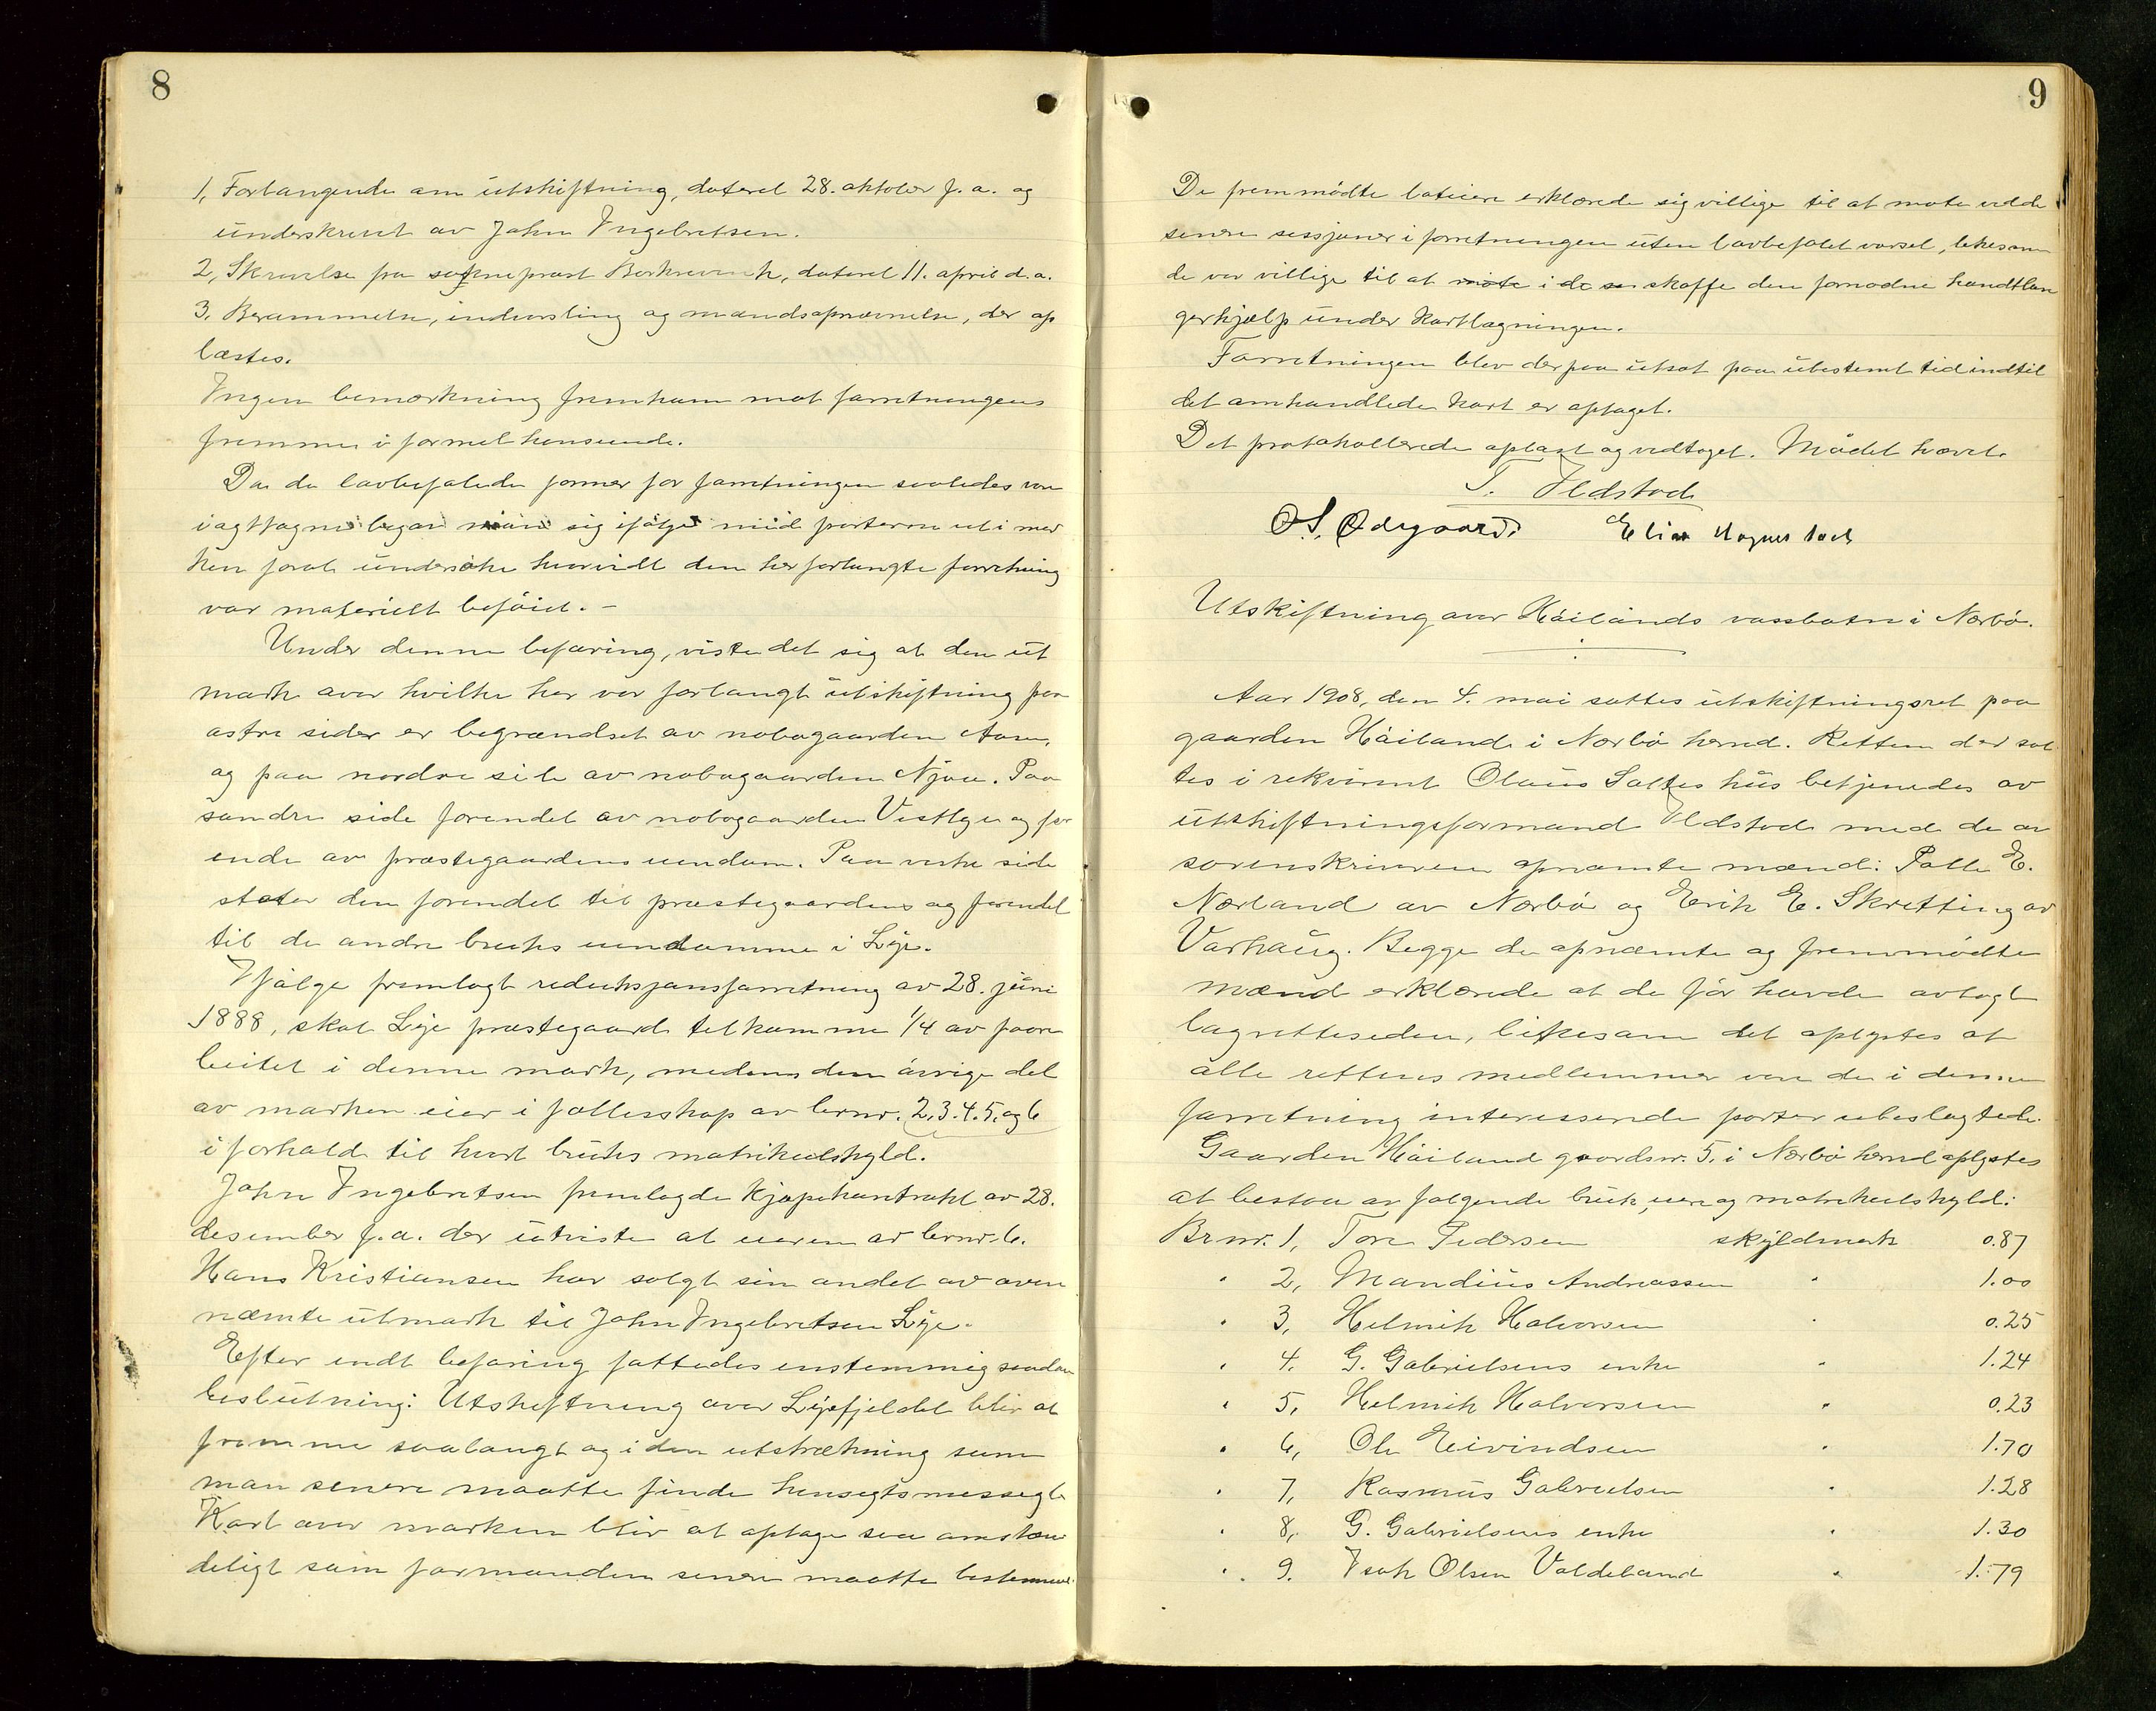 8
1, Forlangende om utskiftning, dateret 28. oktober f.a. og
underskrevet av John Ingebretsen.
2, Skrivelse fra sokneprest Berkrevik, dateret 11. april d.a.
3. Berammelse, indvarsling og mandsopnævnelse, der op
læstes.
Ingen bemerkning fremkom mot forretningens
fremme i formel henseende.
Da de lovbefalede former for forretningen saaledes var
iagttagne begav man sig ifølge med parterne ut i mar
ken forat undersøke hvorvidt den her forlangte forretning
var materielt beføiet. –
Under denne befaring, viste det sig at den ut
mark over hvilke her var forlangt utskiftning paa
østre sider er begrændset av nabogaarden Aam,
og paa nordre side av nabogaarden Njaa. Paa
søndre side forendel av nabogaarden Vestlye og for
ende av præstegaardens eiendom. Paa vestre side
støter den forendel til præstegaardens og forendel
til de andre bruks eiendomme i Lye.
Ifølge fremlagt reduksjonsforretning av 28. juni
1888, skal Lye præstegaard tilkomme 1/4 av faare
beitet i denne mark, medens den øvrige del
av marken eies i fællesskap av brnr. 2.3.4.5. og 6
i forhold til hvert bruks matrikulskyld.
John Ingebretsen fremlagde kjøpekontrakt av 28.
desember f.a. der utviste at eieren av brnr. 6.
Hans Kristiansen har solgt sin andel av oven
nævnte utmark til John Ingebretsen Lye.
Efter endt befaring fattedes enstemmig saadan
beslutning: Utskiftning over Lyefjeldet blir at
fremme saalangt og i den utstrækning som
man senere maatte finde hensigtsmessigt
Kart over marken blir at optage saa omstæn
deligt som formanden senere maatte bestemme.
9
De fremmødte lotteiere erklærede sig villige til at møte ved de
senere sessjoner i forretningen uten lovbefalet varsel, likesom
de var villige til at møte i de se skaffe den fornødne handtlan
gerhjælp under kartlægningen.
Forretningen blev derpaa utsat paa ubestemt tid indtil
det omhandlede kart er optaget.
Det protokollerede oplæst og vedtaget. Mødet hævet.
T. Ildstad
O S. Ødegaard Elias Magnus
Utskiftning over Håilands vassbotn i Nærbø.
Aar 1908, den 4. mai sattes utskiftningsret paa
gaarden Håiland i Nærbø herred. Retten der sat
tes i rekvirent Olaus Saltes hus betjenedes av
utskiftningsformand Ildstad med de av
sorenskriveren opnævnte mænd: Palle E.
Nærland av Nærbø og Erik E. Skretting av
Varhaug. Begge de opnævnte og fremmødte
mænd erklærede at de før havde avlagt
lagretteseden, likesom det oplystes at
alle rettens medlemmer var de i denne
forretning interesserede parter ubeslagtede.
Gaarden Håiland gaardsnr. 5. i Nærbø herred oplystes
at bestaa av følgende bruk, eiere og matrikulskyld:
Brnr. 1, Tore Pedersen skyldmark 0.87
" 2, Mandius Andreassen " 1.00
" 3, Helmik Halvorsen " 0.25
" 4. G. Gabrielsens enke " 1.24
" 5, Helmik Halvorsen " 0.23
" 6, Ole Eivindsen " 1.70
" 7, Rasmus Gabrielsen " 1.28
" 8, G. Gabrielsens enke " 1.30
" 9. Isak Olsen Valdeland " 1.79